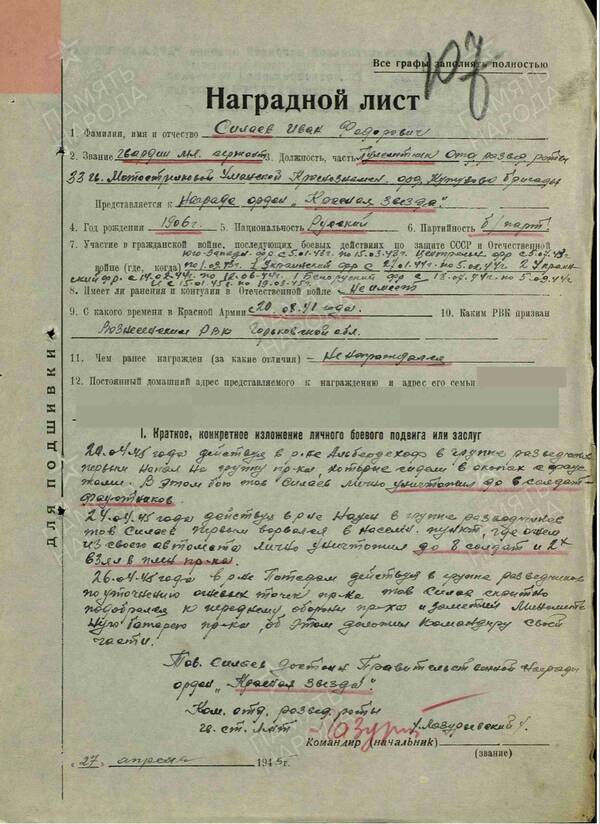 Все графы заполнять полностью
107
Наградной лист
1. Фамилия, имя и отчество Силаев Иван Федорович
2. Звание гвардии мл. сержант 3. Должность, часть Пулеметчик отд. развед. роты
33 гв. Мотострелковой Уманской Краснознамен. орд. Кутузова бригады
Представляется к Награде орден „Красная Звезда"
4. Год рождения 1906 г. 5. Национальность Русский 6. Партийность б/парт.
7. Участие в гражданской войне, последующих боевых действиях по защите СССР и Отечественной
Юго-Западн. фр с 5.01.43г по 15.03.43г. Центральн. фр с 5.07.43г
войне (где, когда) по 1.09.43г. 1 Украинский фр с 27.01.44г по 5.02.44г 2 Украин-
ский фр. с 14.02.44г по 16.06.44г. 1 Белорусский фр с 13.07.44г по 5.09.44г
и с 15.01.45г. по 19.03.45г
8. Имеет ли ранения и контузии в Отечественной войне Не имеет
9. С какого времени в Красной Армии с 20.08.41 года. 10. Каким РВК призван
Вознесенским РВК Горьковской обл.
11. Чем ранее награжден (за какие отличия) Не награждался
12. Постоянный домашний адрес представляемого к награждению и адрес его семьи
I. Краткое, конкретное изложение личного боевого подвига или заслуг
20.04.45 года действуя в р-не в группе разведчиков
первым напал на группу пр-ка, которые сидели в окопах с фауст-
тами. В этом бою тов Силаев лично уничтожил до 6 солдат-
фаустников.
24.04.45 года действуя в р-не Науен в группе разведчиков
тов Силаев первым ворвался в населен. пункт, где огнем
из своего автомата лично уничтожил до 8 солдат и 2х
взял в плен пр-ка.
26.04.45 года в р-не Потсдам действуя в группе разведчиков
по уточнению огневых точек пр-ка тов Силаев скрытно
подобрался к переднему обороны пр-ка и заметил Минометн
ную батарею пр-ка, об этом доложил командиру своей
части.
Тов. Силаев достоин Правительственной Награды
орден „Красная Звезда".
Ком. отд. развед. роты
гв. ст. л-нт /Лазурьевский/.
Командир (начальник)
(звание)
„27" апреля 1945г.
для подшивки
ПАМЯТЬ НАРОДА